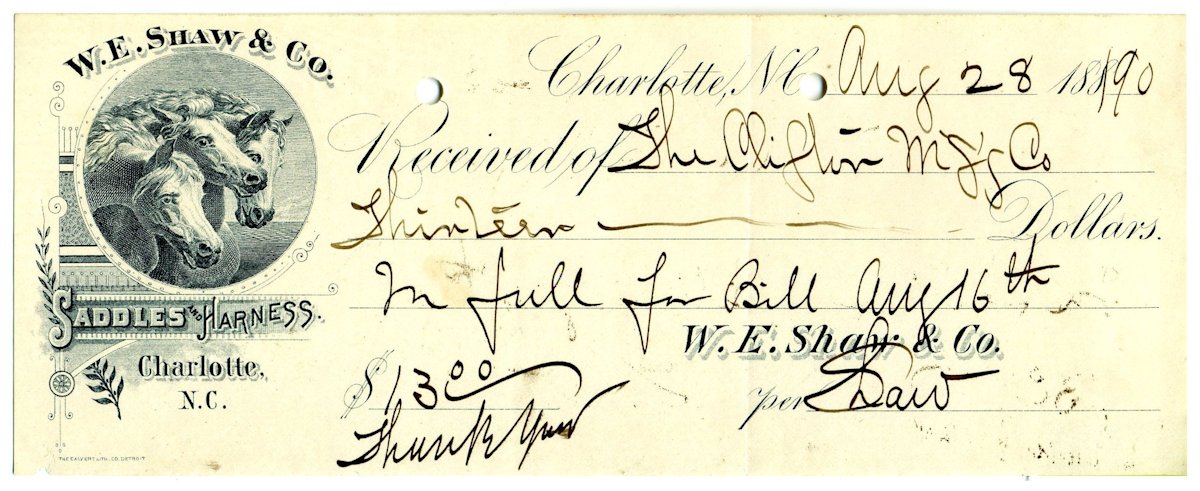 W. E. SHAW & CO.
SADDLES AND HARNESS.
Charlotte,
N.C.
THE CALVERT LITH. CO. DETROIT
Charlotte, N.C. Aug 28 1890
Received of The Clifton Mfg Co
Thirteen Dollars.
In full for Bill Aug 16th
W. E. Shaw & Co.
$ 13 00
per
Thank You